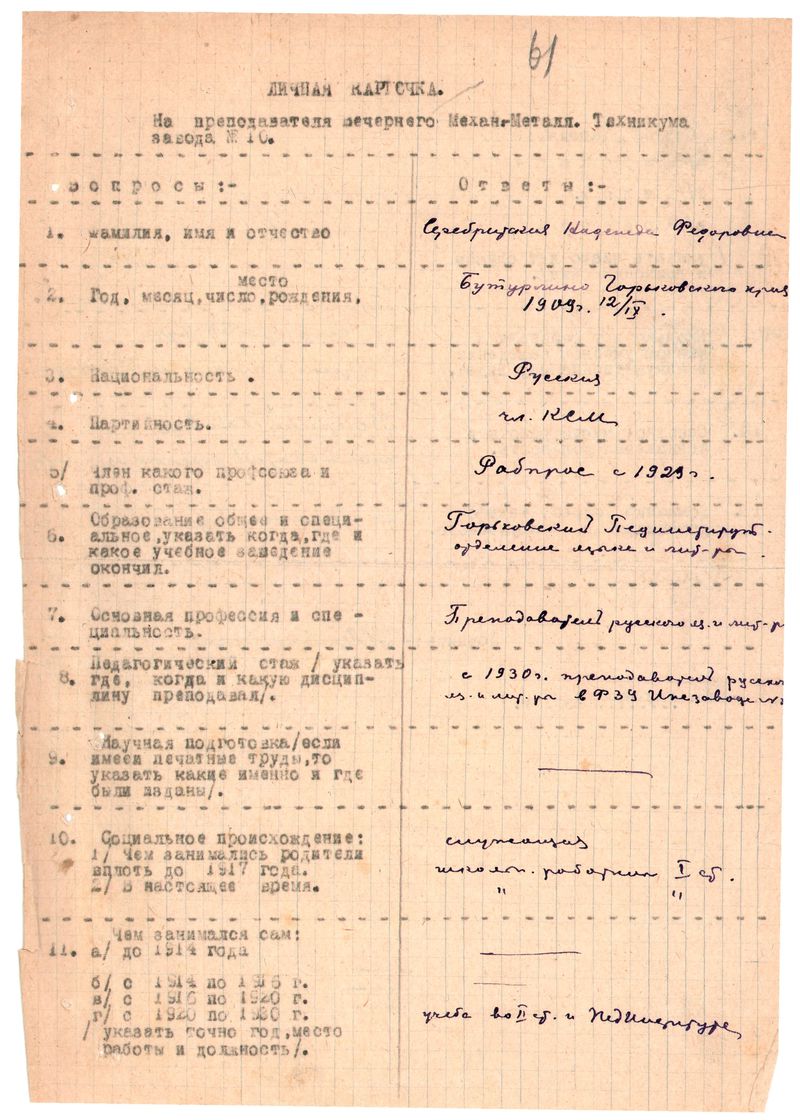 61
ЛИЧНАЯ КАРТОЧКА.
На преподавателя вечернего Механ-Металл. Техникума
завода № 10.
Вопросы:- Ответы:-
1. Фамилия, имя и отчество Надежда Федоровна
место
2. Год, месяц, число, рождения, Бутурлино Горьковского края
1909г. 12/IX.
3. Национальность. Русская
4. Партийность. чл. КСМ
5/ Член какого профсоюза и Рабпрос с 1929 г.
проф. стаж.
6. Образование общее и специ- Горьковский Пединститут-
альное, указать когда, где и отделение языка и лит-ры.
какое учебное заведение
окончил.
7. Основная профессия и спе - Преподаватель русского яз. и лит-р
циальность.
8. Педагогический стаж / указать с 1930г. преподаватель русско
где, когда и какую дисцип- яз. и лит-ры в ФЗУ
лину преподавал/.
9. Научная подготовка/если
имеем печатные труды, то
указать какие именно и где
были изданы/.
10. Социальное происхождение: служащая
1/ Чем занимались родители школьн. работник I ст.
вплоть до 1917 года.
2/ В настоящее время. " "
Чем занимался сам:
11. а/ до 1914 года
б/ с 1914 по 1916 г.
в/ с 1916 по 1920 г.
г/ с 1920 по 1930 г. учеба во II ст. и ПедИнституте
/ указать точно год, место
работы и должность/.